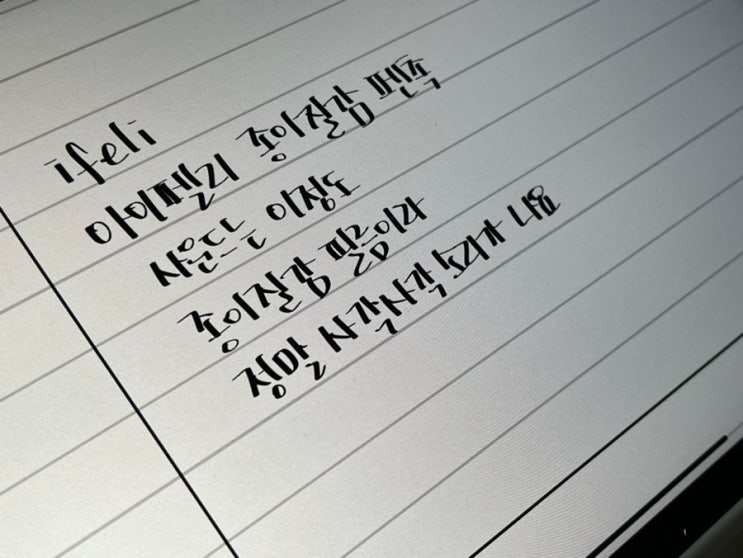 ifeli
아이펠리 종이질감 펜촉
사운드는 이정도
종이질감 필름이라
정말 사각사각 소리가 나요